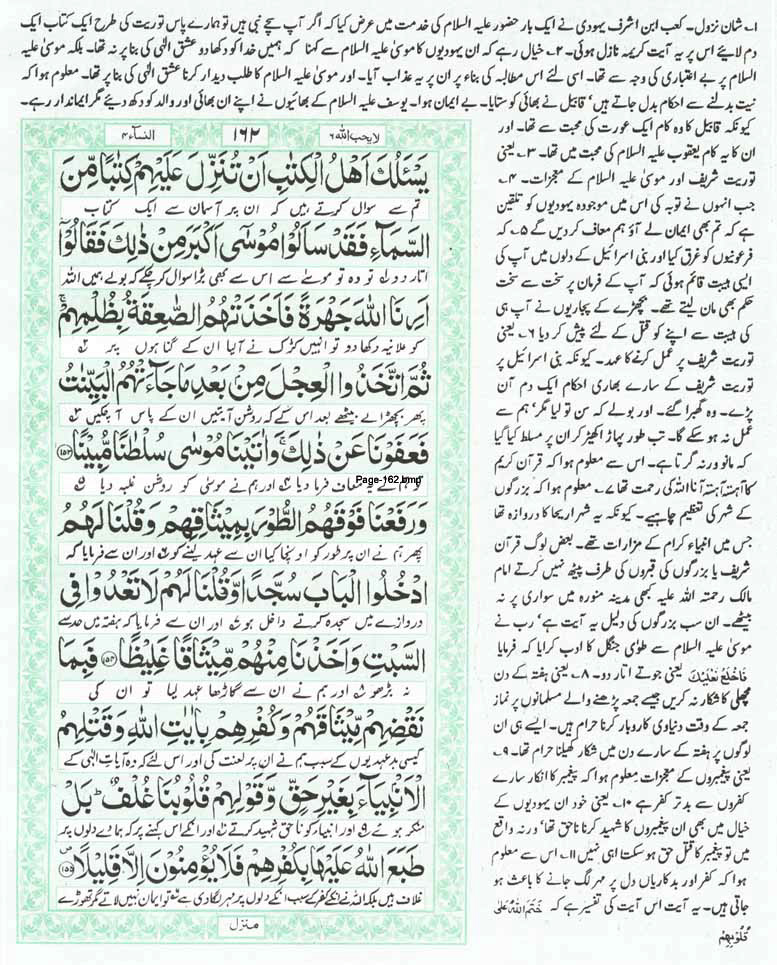 ۱۔ شان نزول۔ کعب ابن اشرف یہودی نے ایک بار حضور علیہ السلام کی خدمت میں عرض کیا کہ اگر آپ سچے نبی ہیں تو ہمارے پاس توریت کی طرح ایک کتاب ایک
دم لایئے اس پر یہ آیت کریمہ نازل ہوئی۔ ۲۔ خیال رہے کہ ان یہودیوں کا موسیٰ علیہ السلام سے کہنا کہ ہمیں خدا کو دکھا دو عشق الٰہی کی بنا پر نہ تھا۔ بلکہ موسیٰ علیہ
السلام پر بے اعتباری کی وجہ سے تھا۔ اسی لئے اس مطالبہ کی بناء پر ان پر یہ عذاب آیا۔ اور موسیٰ علیہ السلام کا طلب دیدار کرنا عشق الٰہی کی بنا پر تھا۔ معلوم ہوا کہ
نیت بدلنے سے احکام بدل جاتے ہیں‘ قابیل نے بھائی کو ستایا۔ بے ایمان ہوا۔ یوسف علیہ السلام کے بھائیوں نے اپنے ان بھائی اور والد کو دکھ دیئے مگر ایماندار رہے۔
کیونکہ قابیل کا وہ کام ایک عورت کی محبت سے تھا۔ اور
ان کا یہ کام یعقوب علیہ السلام کی محبت میں تھا۔ ۳۔ یعنی
توریت شریف اور موسیٰ علیہ السلام کے معجزات۔ ۴۔
جب انہوں نے توبہ کی اس میں موجودہ یہودیوں کو تلقین
ہے کہ تم بھی ایمان لے آؤ ہم معاف کر دیں گے ۵۔ کہ
فرعونیوں کو غرق کیا اور بنی اسرائیل کے دلوں میں آپ کی
ایسی ہیبت قائم ہوئی کہ آپ کے فرمان پر سخت سے سخت
حکم بھی مان لیتے تھے۔ بچھڑے کے پجاریوں نے آپ ہی
کی ہیبت سے اپنے کو قتل کے لئے پیش کر دیا ۶۔ یعنی
توریت شریف پر عمل کرنے کا عہد۔ کیونکہ بنی اسرائیل پر
توریت شریف کے سارے بھاری احکام ایک دم آن
پڑے۔ وہ گھبرا گئے۔ اور بولے کہ سن تو لیا مگر‘ ہم سے
عمل نہ ہو سکے گا۔ تب طور پہاڑ اکھیڑ کر ان پر مسلط کیا گیا
کہ مانو ورنہ گرتا ہے۔ اس سے معلوم ہوا کہ قرآن کریم
کا آہستہ آہستہ آنا اللہ کی رحمت تھا ۷۔ معلوم ہوا کہ بزرگوں
کے شہر کی تعظیم چاہیے۔ کیونکہ یہ شہر اریحا کا دروازہ تھا
جس میں انبیاء کرام کے مزارات تھے۔ بعض لوگ قرآن
شریف یا بزرگوں کی قبروں کی طرف پیٹھ نہیں کرتے امام
مالک رحمتہ اللہ علیہ کبھی مدینہ منورہ میں سواری پر نہ
بیٹھے۔ ان سب بزرگوں کی دلیل یہ آیت ہے‘ رب نے
موسیٰ علیہ السلام سے طوٰی جنگل کا ادب کرایا کہ فرمایا
فَاخْلَعْ نَعْلَيْكَ یعنی جوتے اتار دو۔ ۸۔ یعنی ہفتہ کے دن
مچھلی کا شکار نہ کریں جیسے جمعہ پڑھنے والے مسلمانوں پر نماز
جمعہ کے وقت دنیاوی کاروبار کرنا حرام ہیں۔ ایسے ہی ان
لوگوں پر ہفتہ کے سارے دن میں شکار کھیلنا حرام تھا۔ ۹۔
یعنی پیغمبروں کے معجزات معلوم ہوا کہ پیغمبر کا انکار سارے
کفروں سے بدتر کفر ہے ۱۰۔ یعنی خود ان یہودیوں کے
خیال میں بھی ان پیغمبروں کا شہید کرنا ناحق تھا‘ ورنہ واقع
میں تو پیغمبر کا قتل حق ہو سکتا ہی نہیں ۱۱۔ اس سے معلوم
ہوا کہ کفر اور بدکاریاں دل پر مہر لگ جانے کا باعث ہو
جاتی ہیں۔ یہ آیت اس آیت کی تفسیر ہے کہ خَتَمَ اللّٰهُ عَلٰى
قُلُوْبِهِمْ
لا یحب اللہ ۶ ۱۶۲ النساء ۴
يَسْـَٔلُكَ اَهْلُ الْكِتٰبِ اَنْ تُنَزِّلَ عَلَيْهِمْ كِتٰبًا مِّنَ
تم سے سوال کرتے ہیں کہ ان پر آسمان سے ایک کتاب
السَّمَآءِ فَقَدْ سَاَلُوْا مُوْسٰۤى اَكْبَرَ مِنْ ذٰلِكَ فَقَالُوْۤا
اتار دو تو وہ تو موسے سے اس سے بھی بڑا سوال کر چکے کہ بولے ہمیں اللہ
اَرِنَا اللّٰهَ جَهْرَةً فَاَخَذَتْهُمُ الصّٰعِقَةُ بِظُلْمِهِمْ ۚ
کو علانیہ دکھا دو تو انہیں کڑک نے آلیا ان کے گناہوں پر
ثُمَّ اتَّخَذُوا الْعِجْلَ مِنْ بَعْدِ مَا جَآءَتْهُمُ الْبَيِّنٰتُ
پھر بچھڑا لے بیٹھے بعد اس کے کہ روشن آیتیں ان کے پاس آچکیں
فَعَفَوْنَا عَنْ ذٰلِكَ ۚ وَاٰتَيْنَا مُوْسٰى سُلْطٰنًا مُّبِيْنًا ۝۱۵۳
Page-162.bmp
تو ہم نے یہ معاف فرما دیا اور ہم نے موسٰی کو روشن غلبہ دیا
وَرَفَعْنَا فَوْقَهُمُ الطُّوْرَ بِمِيْثَاقِهِمْ وَقُلْنَا لَهُمُ
پھر ہم نے ان پر طور کو اونچا کیا ان سے عہد لینے کو اور ان سے فرمایا کہ
ادْخُلُوا الْبَابَ سُجَّدًا وَّقُلْنَا لَهُمْ لَا تَعْدُوْا فِي
دروازے میں سجدہ کرتے داخل ہو اور ان سے فرمایا کہ ہفتہ میں حد سے
السَّبْتِ وَاَخَذْنَا مِنْهُمْ مِّيْثَاقًا غَلِيْظًا ۝۱۵۴ فَبِمَا
نہ بڑھو اور ہم نے ان سے گاڑھا عہد لیا تو ان کی
نَقْضِهِمْ مِّيْثَاقَهُمْ وَكُفْرِهِمْ بِاٰيٰتِ اللّٰهِ وَقَتْلِهِمُ
کیسی بدعہدیوں کے سبب ہم نے ان پر لعنت کی اور اس لئے کہ وہ آیات الٰہی کے
الْاَنْۢبِيَآءَ بِغَيْرِ حَقٍّ وَّقَوْلِهِمْ قُلُوْبُنَا غُلْفٌ ؕ بَلْ
منکر ہوئے اور انبیاء کو ناحق شہید کرتے اور انکے اس کہنے پر کہ ہمارے دلوں پر
طَبَعَ اللّٰهُ عَلَيْهَا بِكُفْرِهِمْ فَلَا يُؤْمِنُوْنَ اِلَّا قَلِيْلًا ۝۱۵۵
غلاف ہیں بلکہ اللہ نے انکے کفر کے سبب انکے دلوں پر مہر لگا دی ہے تو ایمان نہیں لاتے مگر تھوڑے
منزل